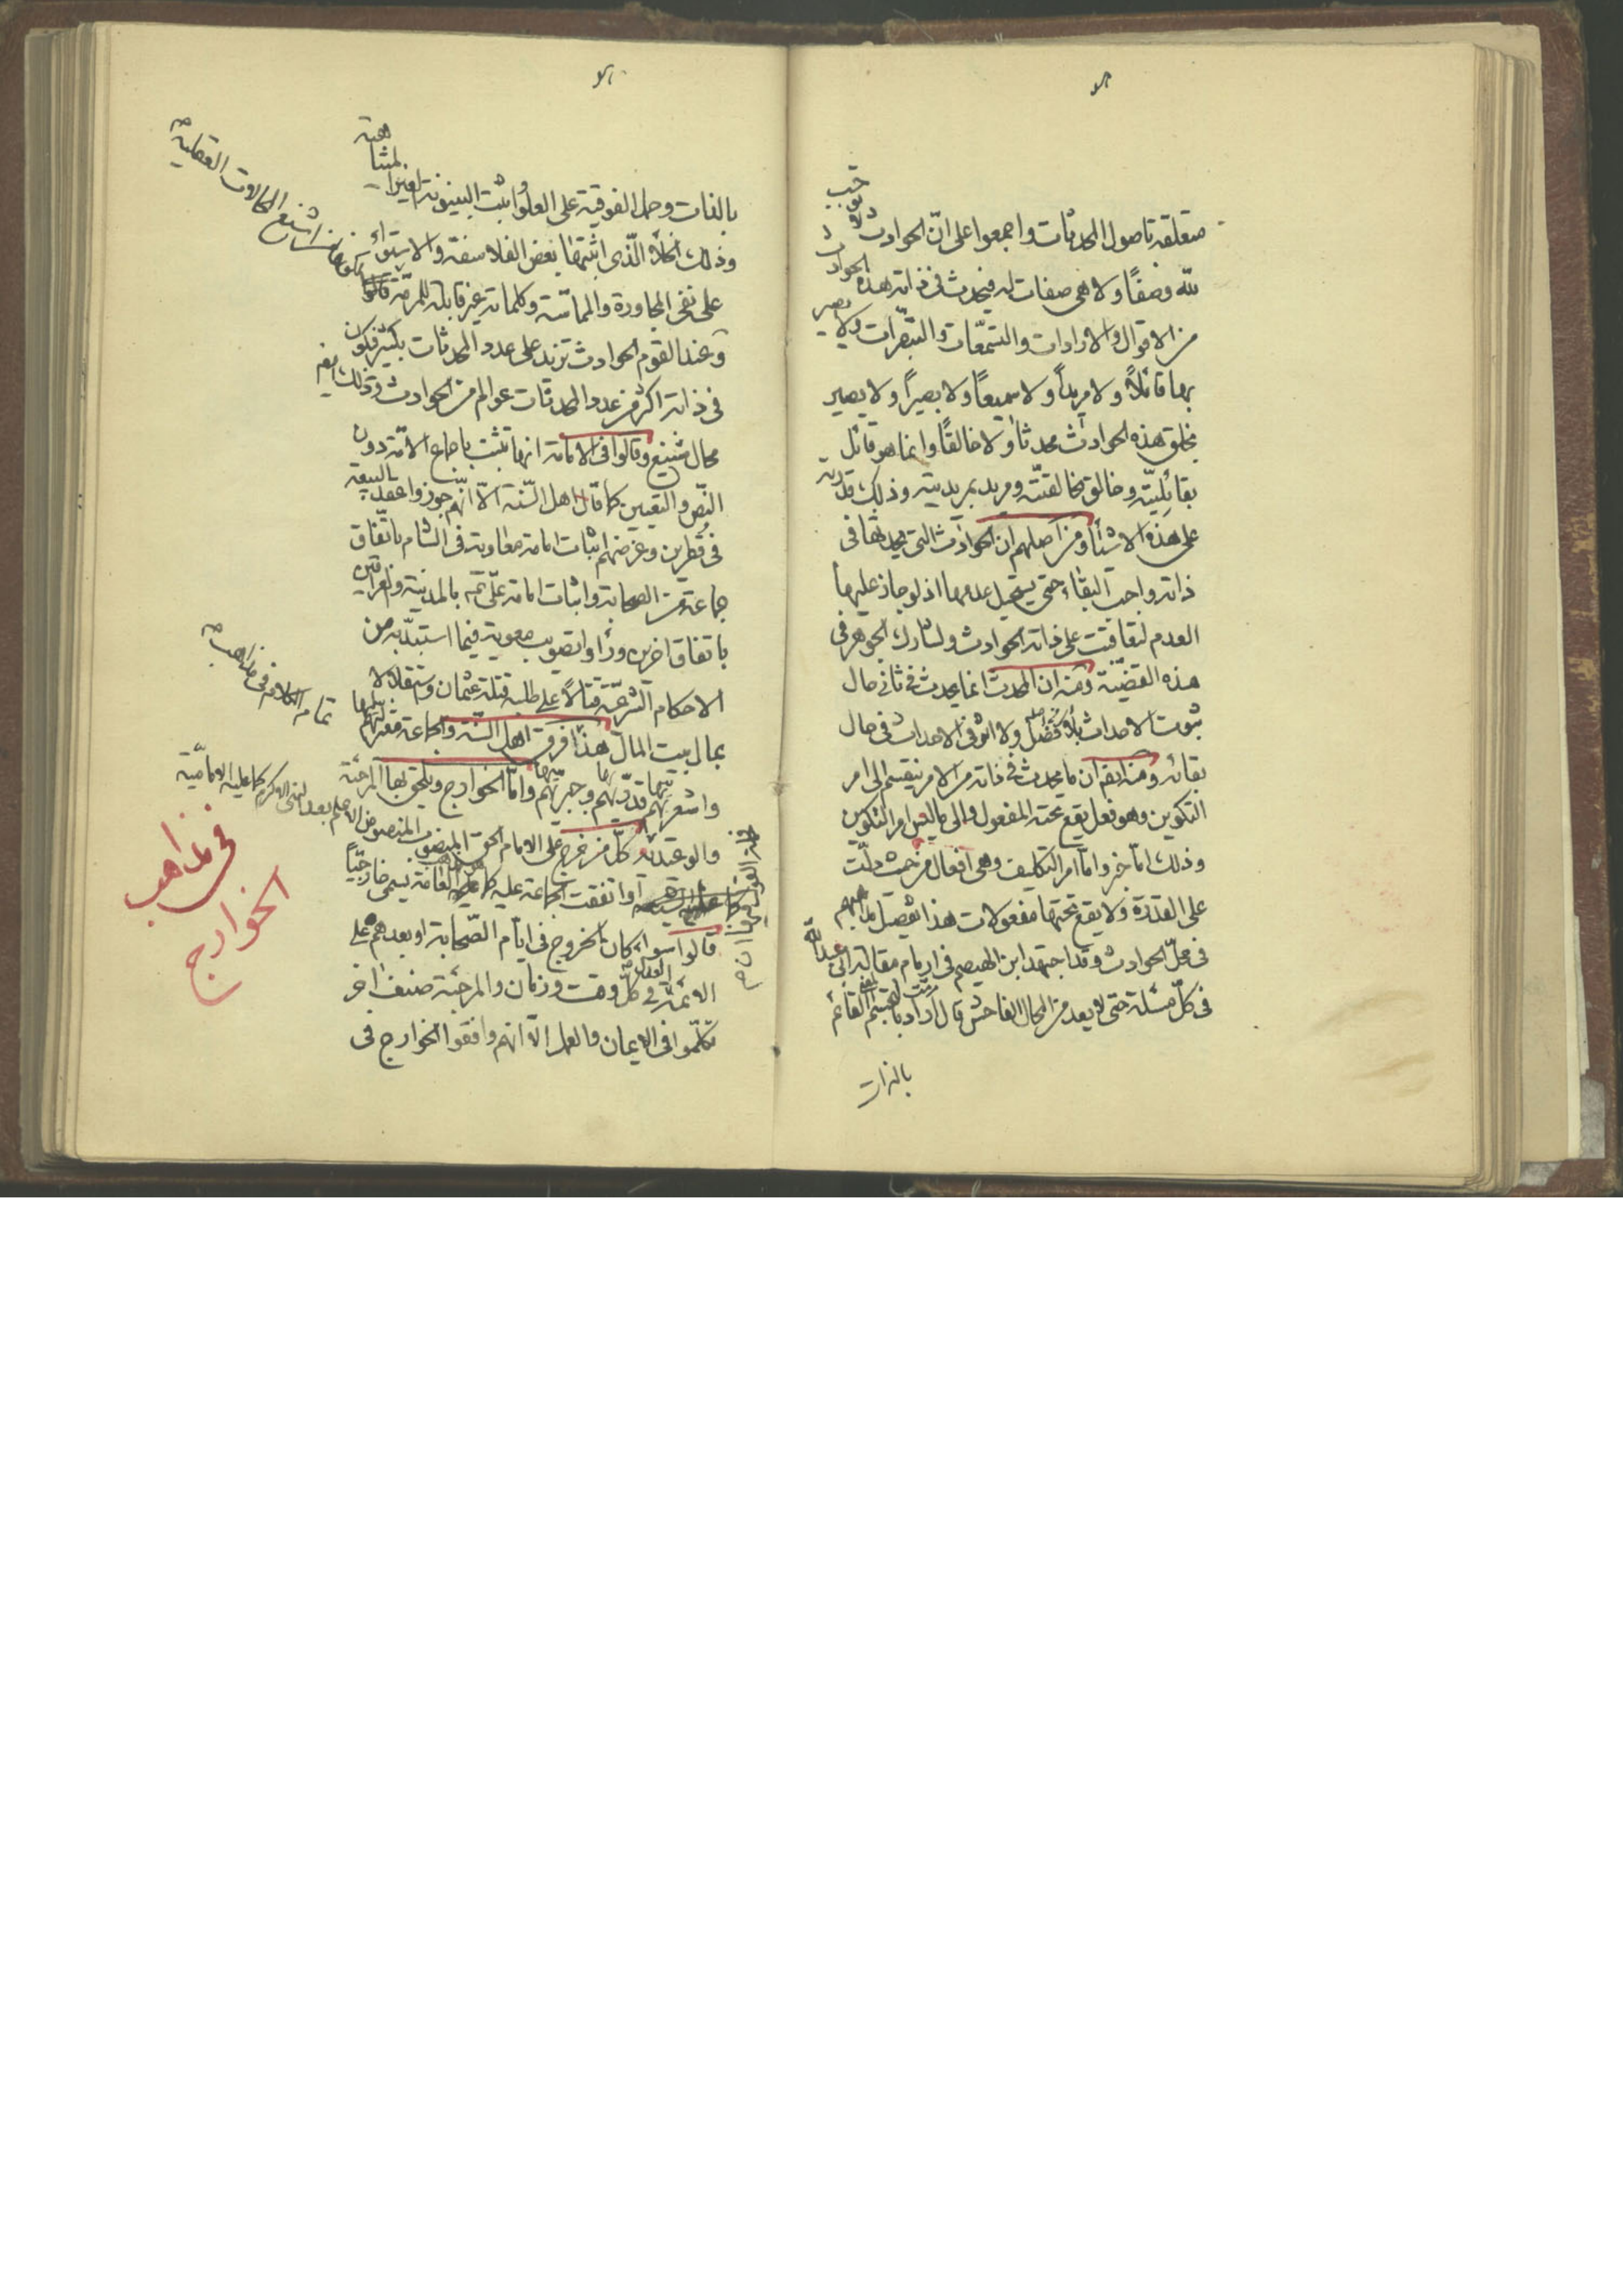 متعلقة باصول المحدثات واجمعوا على انّ الحوادث لا توجب
لله وصفًا ولا هي صفات له فيحدث في ذاته هذه الحوادث
من الاقوال والارادات والتسمّعات والتبصّرات ولا يصير
بها قائلاً ولا مريداً ولا سميعاً ولا بصيراً ولا يصير
بخلق هذه الحوادث محدثا ولا خالقًا وانما هو قائل
بقائليّته وخالق بخالقيّته ومريد بمريديته وذلك قدرته
على هذه الاشيأ ومن اصلهم ان الحوادث التي يحدثها في
ذاته واجب البقاء حتى يستحيل عدمها اذ لو جاز عليها
العدم لتعاقبت على ذاته الحوادث ولشارك الجوهر في
هذه القضيّة ومنه ان المحدث انما يحدث في ثاني حال
ثبوت الاحداث بلا فصل ولا اثر في الاحداث في حال
بقائه ومنه ايضا ان ما يحدث في ذاته من الامر ينقسم الى امر
التكوين وهو فعل يقع تحته المفعول والى ما ليس امر التكوين
وذلك امّا خبر وامّا امر التكليف وهي افعال من حيث دلّت
على القدرة ولا يقع تحتها مفعولات هذا تفصيل مذاهبهم
في محلّ الحوادث وقد اجتهد ابن الهيصم في ارمام مقالة ابي عبدالله
في كلّ مسئلة حتى لا يعد من المحال الفاحش قال اراد بالجسم القائم
بالذات
بالذات وحمل الفوقية على العلو واثبت البينونة الغير المتناهية
وذلك الخلأ الّذي اثبتها بعض الفلاسفة والاستواء
على نفى المجاورة والمماسّة وكلماته غير قابلة للمرمّة قالوا
وعند القوم الحوادث تزيد على عدد المحدثات بكثير فيكون
في ذاته اكثر من عدد المحدثات عوالم من الحوادث وذلك ايضا
محال شنيع وقالوا في الامامة انها تثبت باجماع الامّة دون
النّص والتعيين كما قال اهل السّنة الّا انّهم جوزوا عقد البيعة
في قطرين وغرضهم اثبات امامة معاوية في الشام باتّفاق
جماعة من الصحابة واثبات امامة علّى بالمدينة والعراقين
باتفاق اخرين ورأوا تصويب معوية فيما استبدّ به من
الاحكام الشرعيّة قتالاً على طلب قتلة عثمان واستقلالا
بمال بيت المال هذا فرق اهل السّنة والجماعة معتزليّها
واشعريّها قدريّتها وجبريّتها وامّا الخوارج ويلحق بها المرجئة
والوعيدية كلّ من خرج على الامام الحق المنصوص
او اتفقت الجماعة عليه كما عليه العامة يسمى خارجيّاً
قالوا سواء كان الخروج في ايّام الصّحابة او بعدهم على
الائمة في كلّ وقت وزمان والمرجئة صنف اخر
تكلّموا في الايمان والعمل الّا انّهم وافقوا الخوارج في
اشنع المحالات العقلية
تمام الكلام في مذاهب
كما عليه الاماميّة
في مذاهب
الخوارج